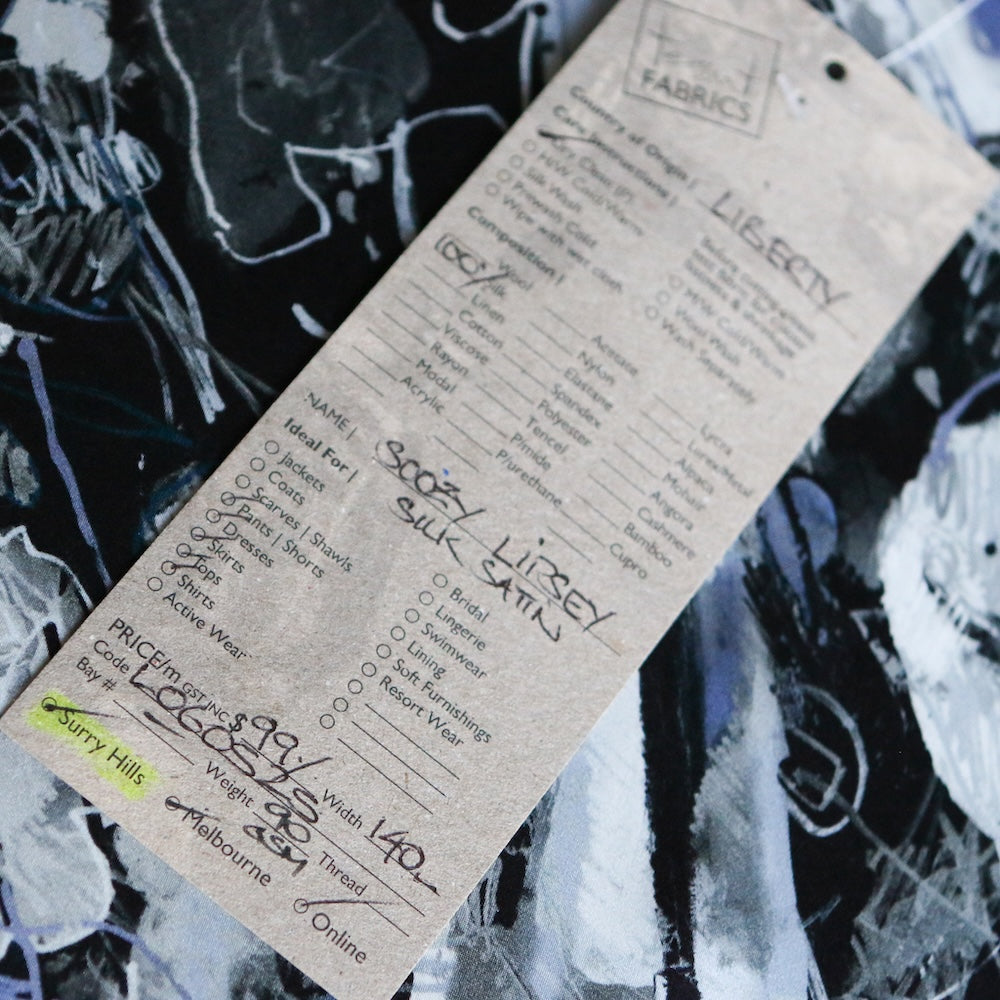 Tessuti
FABRICS
Country of Origin | LIBERTY
Care Instructions |
Dry Clean (P)
H/W Cold/Warm
Silk Wash
Prewash Cold
Wipe with wet cloth
H/W Cold/Warm
Wool Wash
Wash Separately
Composition |
Wool
100% Silk
Linen
Cotton
Viscose
Rayon
Modal
Acrylic
Acetate
Nylon
Elastane
Spandex
Polyester
Tencel
P/amide
P/urethane
Lycra
Lurex/Metal
Alpaca
Mohair
Angora
Cashmere
Bamboo
Cupro
NAME | SOOZY LIPSEY
SILK SATIN
Ideal For |
Jackets
Coats
Scarves | Shawls
Pants | Shorts
Dresses
Skirts
Tops
Shirts
Active Wear
Bridal
Lingerie
Swimwear
Lining
Soft Furnishings
Resort Wear
PRICE/m GST INC $99./ Width 140
Code
Bay # Weight 90 GSM Thread
Surry Hills Melbourne Online